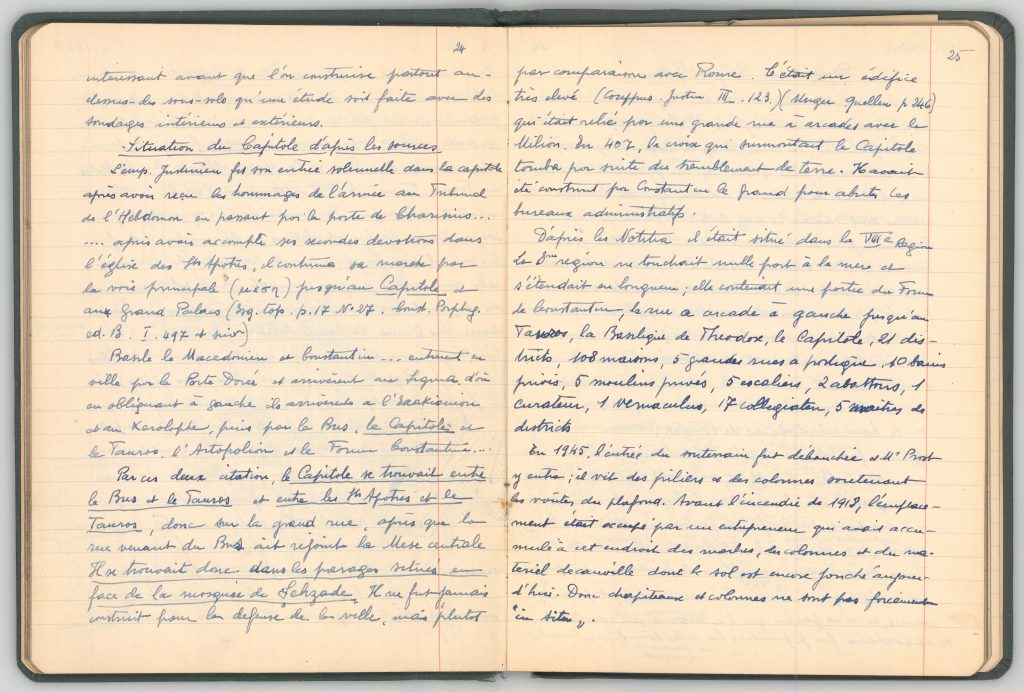 24
intéressant avant que l'on construise partout au-
dessus des sous-sols qu'une étude soit faite avec des
sondages intérieurs et extérieurs.
Situation du Capitole d'après les sources
L'emp. Justinien fit son entrée solennelle dans la capitale
après avoir reçu les hommages de l'armée au Tribunal
de l'Hebdomon en passant par la porte de Charisius...
.... après avoir accompli ses secondes dévotions dans
l'église des Sts Apôtres, il continua sa marche par
la voie principale (μέση) jusqu'au Capitole et
aux Grand Palais (Org. top. p. 17 N° 27. Const. Porphyg.
ed. B I. 497 et suiv)
Basile le Macedonien et Constantin... entrèrent en
ville par la Porte Dorée et arrivèrent au Sigma, d'où
en obliquant à gauche ils arrivèrent a l'Exakionion
et au Xerolophe, puis par le Bus, le Capitole et
le Tauros, l'Artopolion et le Forum Constantin...
Par ces deux citation, le Capitole se trouvait entre
le Bus et le Tauros et entre les Sts Apôtres et le
Tauros, donc sur la grand rue, après que la
rue venant du Bus ait rejoint la Mese centrale
Il se trouvait donc dans les parages situés en
face de la mosquée de Sehzade. Il ne fut jamais
construit pour la défense de la ville, mais plutôt
25
par comparaison avec Rome. C'était un édifice
très elevé (Corippus. Justin III. 123.) (Unger Quellen p 246)
qui était relié par une grande rue à arcades avec le
Milion. En 407, la croix qui surmontait le Capitole
tomba par suite du tremblement de terre. Il avait
été construit par Constantin le Grand pour abriter les
bureaux administratifs.
D'après les Notitia il était situé dans la VIIIe Region
La 8me région ne touchait nulle part à la mer et
s'étendait en longueur; elle contenait une partie du Forum
de Constantin, la rue a arcade à gauche jusqu'au
Tauros, la Basilique de Theodose, le Capitole, 21 dis-
tricts, 108 maisons, 5 grandes rues a portique, 10 bains
privés, 5 moulins privés, 5 escaliers, 2 abattoirs, 1
curateur, 1 vernaculus, 17 collegiaten, 5 maitres de
districts
En 1945, l'entrée du souterrain fut débouchée et Mr Prost
y entra; il vit des piliers et des colonnes soutenant
les voûtes du plafond. Avant l'incendie de 1918, l'empace-
ment était occupé par un entrepreneur qui avait accu-
mulé à cet endroit des marbres, des colonnes et du ma-
tériel decauville dont le sol est encore jonché aujour-
d'hui. Donc chapiteaux et colonnes ne sont pas forcément
"in situ".